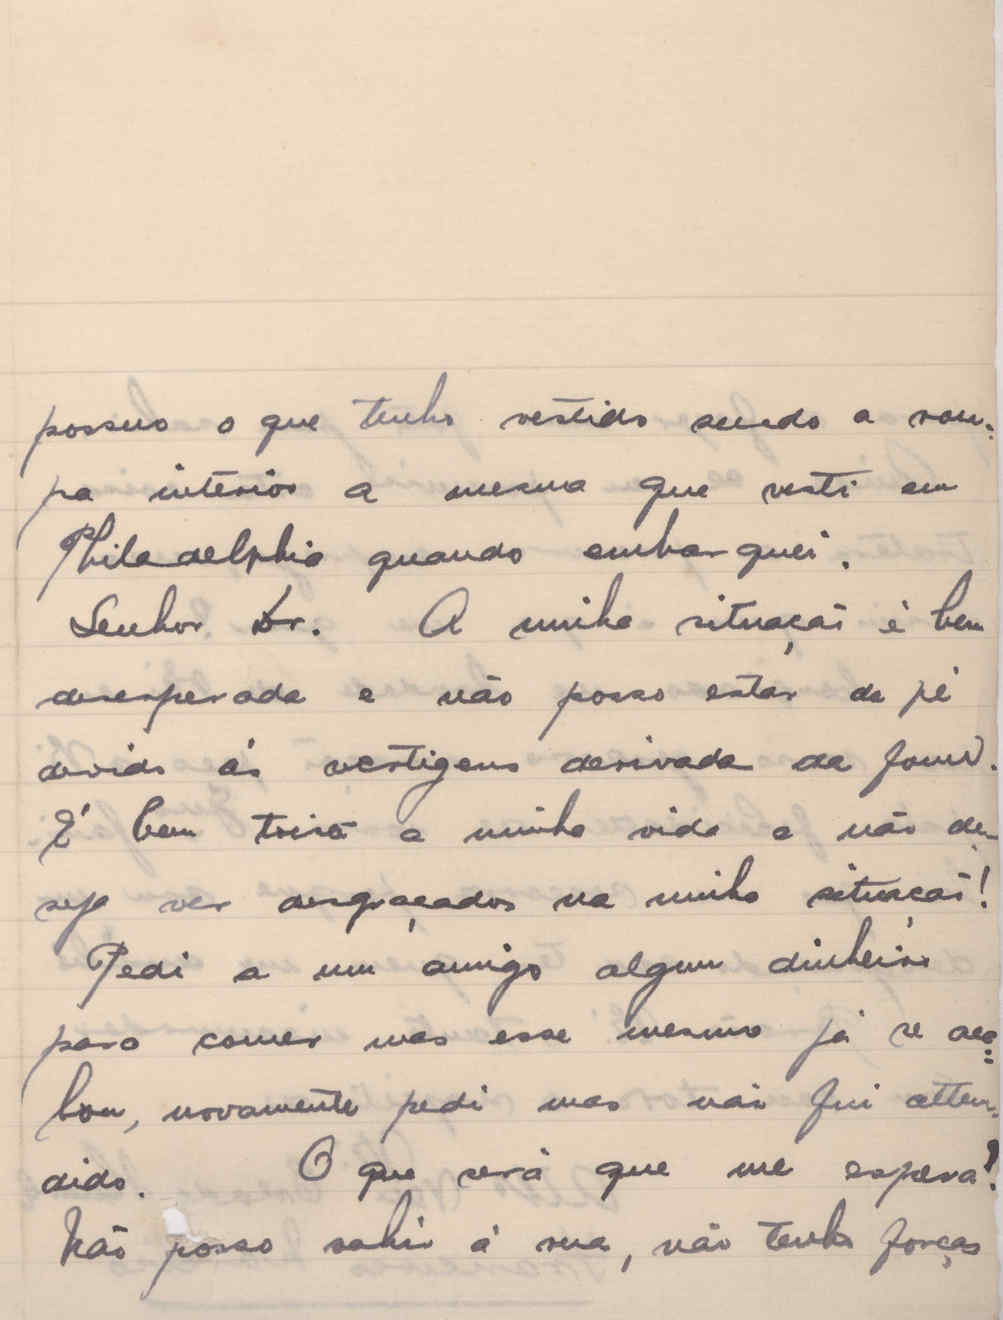 possuo o que tenho vestido sendo a rou-
pa interior a mesma que vesti em
Philadelphia quando embarquei.
Senhor Dr. A minha situação é bem
desesperada e não posso estar de pé
devido ás vertigens derivada da fome.
É bem triste a minha vida e não de-
sejo ver desgraçados na minha situação!
Pedi a um amigo algum dinheiro
para comer mas esse mesmo já se aca=
bou, novamente pedi mas não fui atten-
dido. O que será que me espera?!
Não posso sahir á rua, não tenho forças